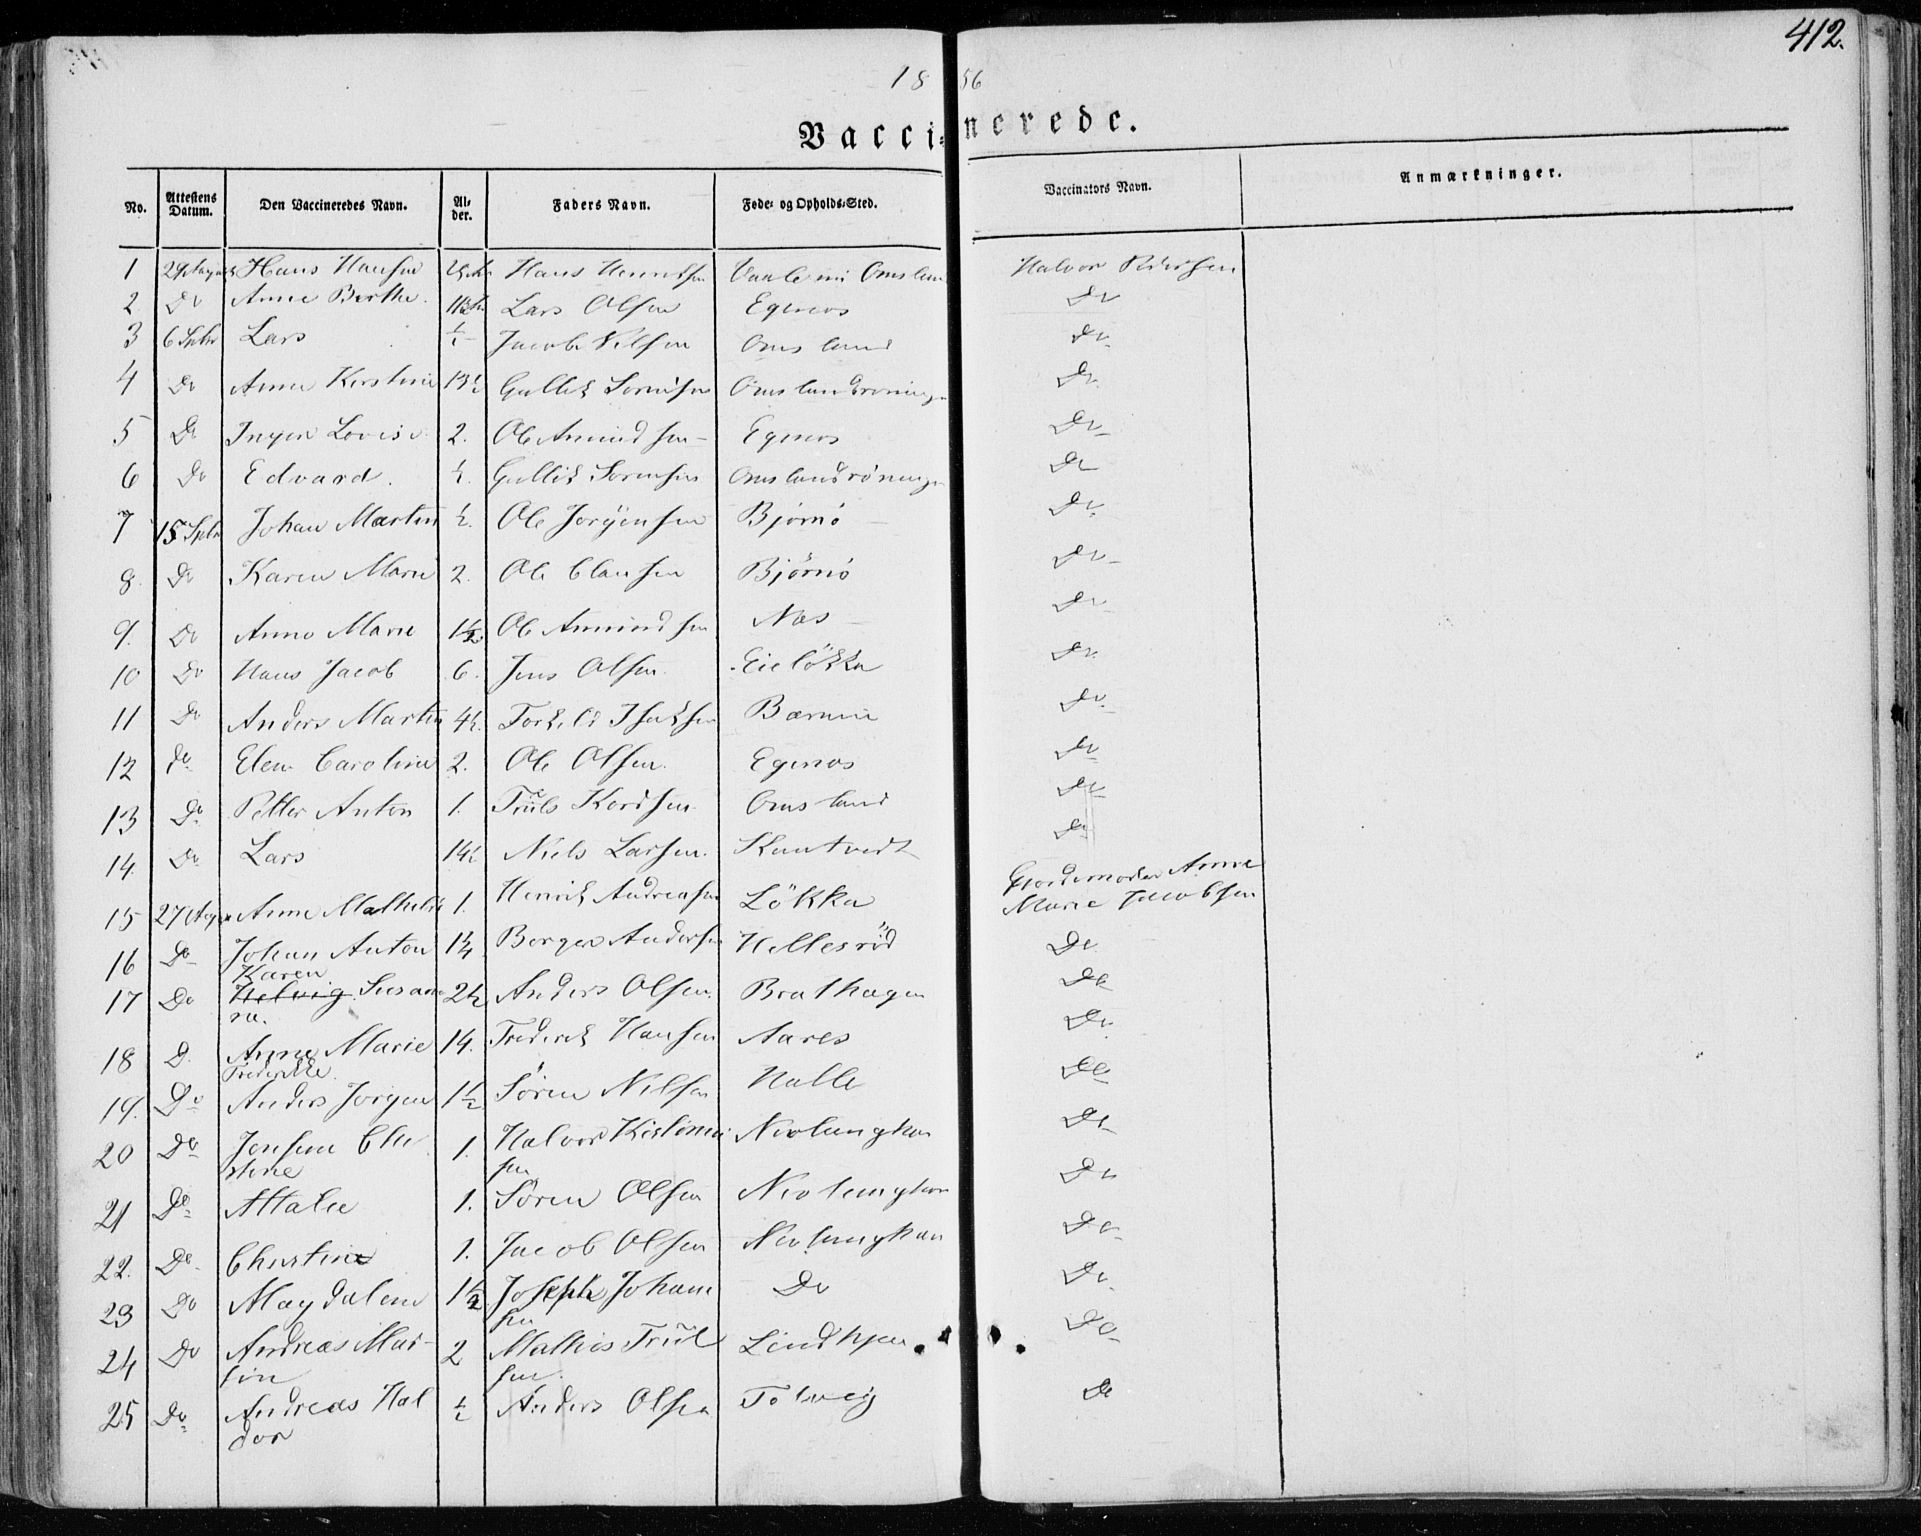 412.
1856
Vaccinerede.
No. Attestens Datum. Den Vaccineredes Navn. Alder. Faders Navn. Føde- og Opholds-Sted. Vaccinators Navn. Anmærkninger.
1 29 Hans Hansen Hans Halvor
2 Do Anne Berthe. Lars Olsen Egenes Do
3 6 Septr Lars ½ Jacob Nilsen Omsland Do
4 Do Anne Kirstine 13½ Gullik Sørensen Do
5 Do Inger Lovise 2. Ole Amundsen Egenes Do
6 Do Edvard. ½. Gullik Sørensen Do
7 15 Sptr Johan Martin ½. Ole Jorgensen Bjørnø Do
8. Do Karen Marie 2. Ole Clausen Bjørnø Do
9. Do Anne Marie 1½. Ole Amundsen Næs Do
10 Do Hans Jacob 6. Jens Olsen. Eieløkka Do
11 Do Anders Martin 4½. Torkild Isaksen Do
12 Do Elen Caroline 2. Ole Olsen. Egenes Do
13 Do Petter Anton 1. Truls Omsland Do
14. Do Lars Niels Larsen. Do
15 27 Anne Mathelde 1. Henrik Andreasen Løkka Gjordemoder Anne
Marie Jacobsen
16 Do Johan Anton 1¼ Borger Andersen Hellesrød Do
17 Do Karen
Helvig Susan
na. 2½ Anders Olsen. Brathagen Do
18 D. Anne Marie
Frederikke 14. Frederik Hansen Aares Do
19. Do Anders Jorgen 1½ Søren Nilsen Halle Do
20 Do Chri
stine 1. Halvor
sen Nevlunghavn Do
21 Do Attalie 1. Søren Olsen Nevlunghavn Do
22. Do Christine 1. Jacob Olsen Nevlunghavn Do
23 Do Magdalene 1½ Joseph Johan
sen Do Do
24 Do Andreas Mar-
tin 2 Mathis Trul
sen. Do
25 Do Andreas Hal
dor ½ Anders Olsen Do